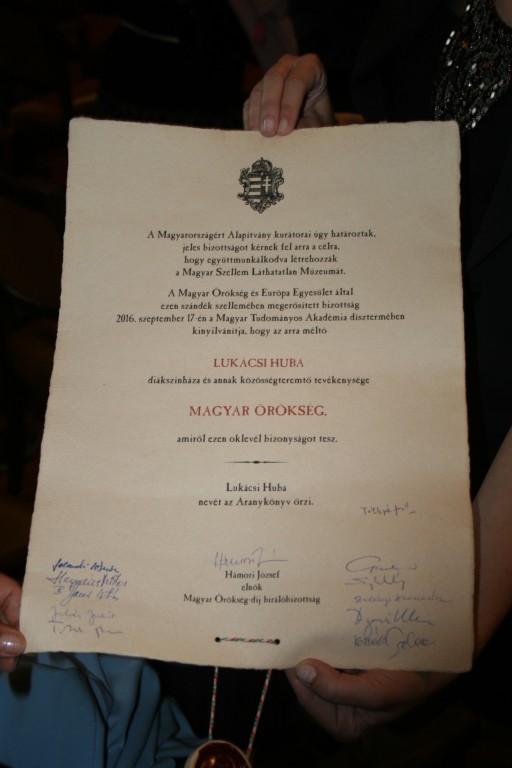 A Magyarországért Alapítvány kurátorai úgy határoztak,
jeles bizottságot kérnek fel arra a célra,
hogy együttmunkálkodva létrehozzák
a Magyar Szellem Láthatatlan Múzeumát.
A Magyar Örökség és Európa Egyesület által
ezen szándék szellemében megerősített bizottság
2016. szeptember 17-én a Magyar Tudományos Akadémia dísztermében
kinyilvánítja, hogy az arra méltó
LUKÁCSI HUBA
diákszínháza és annak közösségteremtő tevékenysége
MAGYAR ÖRÖKSÉG,
amiről ezen oklevél bizonyságot tesz.
Lukácsi Huba
nevét az Aranykönyv őrzi.
Hámori József
elnök
Magyar Örökség-díj bírálóbizottság